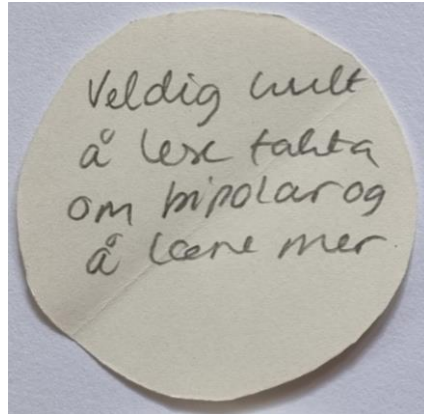 Veldig kult
å lese fakta
om bipolar og
å lære mer